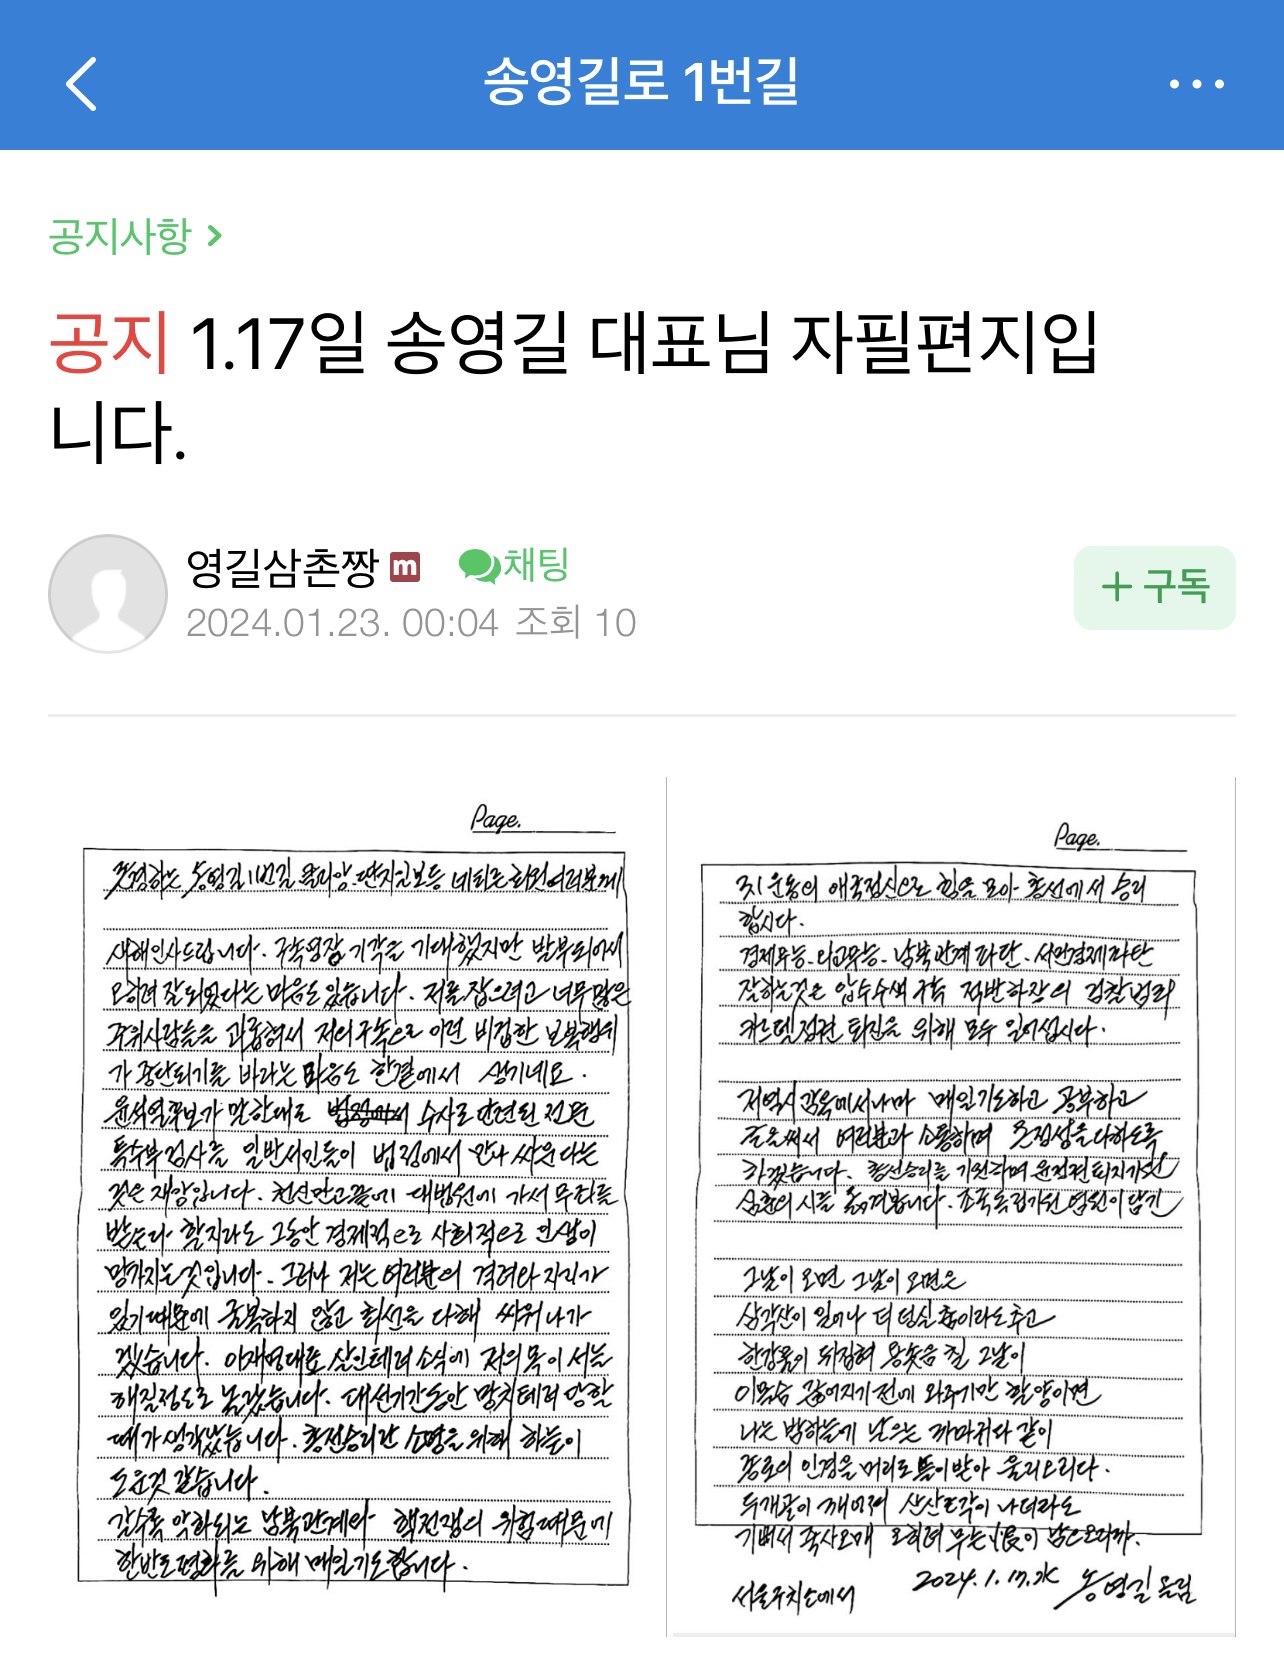 송영길로 1번길
공지사항
공지 1.17일 송영길 대표님 자필편지입
니다.
영길삼촌짱 m 채팅
2024.01.23. 00:04 조회 10
+ 구독
Page.
존경하는 송영길 1번길 회원여러분께
새해인사드립니다. 구속영장 기각을 기대했지만 발부되어서
오히려 잘되었다는 마음도 있습니다. 저를 잡으려고 너무 많은
주위사람들을 괴롭혀서 저의 구속으로 이런 비겁한 보복행위
가 중단되기를 바라는 마음도 한결에서 생기네요.
윤석열후보가 말한대로 수사로 단련된 전문
특수부검사를 일반서민들이 법정에서 만나 싸운다는
것은 재앙입니다. 천신만고끝에 대법원에 가서 무죄를
받는다 할지라도 그동안 경제적으로 사회적으로 인생이
망가지는것입니다. 그러나 저는 여러분의 격려와 지지가
있기때문에 굴복하지 않고 최선을 다해 싸워나가
겠습니다. 이재명대표 살인테러소식에 저의 목이 서늘
해질정도로 놀랐습니다. 대선기간동안 망치테러 당할
때가 생각났습니다. 총선승리란 소명을 위해 하늘이
도운것 같습니다.
갈수록 악화되는 남북관계와 핵전쟁의 위험때문에
한반도평화를 위해 매일기도합니다.
Page.
3.1운동의 애국정신으로 힘을 모아 총선에서 승리
합시다.
경제무능. 외교무능. 남북관계파탄. 서민경제파탄
잘하는것은 압수수색 구속 적반하장의 검찰범죄
카르텔정권 퇴진을 위해 모두 일어섭시다.
저 역시 감옥에서나마 매일기도하고 공부하고
글을써서 여러분과 소통하며 조정성을다하도록
하겠습니다. 총선승리를 기원하며 윤정권퇴진기원
심훈의 시를 옮겨봅니다. 조국독립기원 염원이 담긴
그날이 오면 그날이 오면은
삼각산이 일어나 더덩실 춤이라도 추고
한강물이 뒤집혀 용솟음 칠 그날이
이목숨 끊어지기전에 와주기만 할양이면
나는 밤하늘에 날으는 까마귀와 같이
종로의 인경을 머리로 들이받아 울리오리다.
두개골이 깨어져 산산조각이 나더라도
기뻐서 죽사오매 오히려 무슨 恨이 남으오리까.
서울구치소에서 2024.1.17.水 송영길 올림